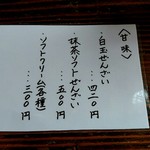 〈甘味〉
・白玉ぜんざい
・・・四二〇円
・抹茶ソフトぜんざい
・・・五〇〇円
・ソフトクリーム(各種)
・・・三〇〇円